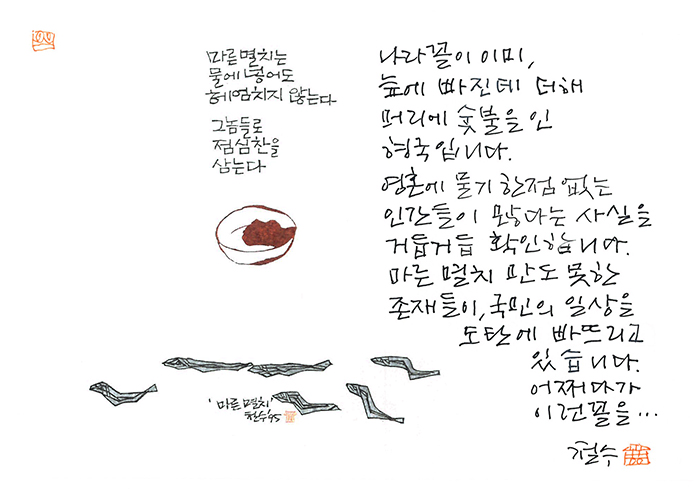 마른 멸치는
물에 넣어도
헤엄치지 않는다
그놈들로
점심찬을
삼는다
'마른 멸치'
철수 95
나라꼴이 이미,
늪에 빠진데 더해
머리에 숯불을 인
형국입니다.
영혼에 물기 한점 없는
인간들이 많다는 사실을
거듭거듭 확인합니다.
마른 멸치 만도 못한
존재들이, 국민의 일상을
도탄에 빠뜨리고
있습니다.
어쩌다가
이런꼴을…
철수